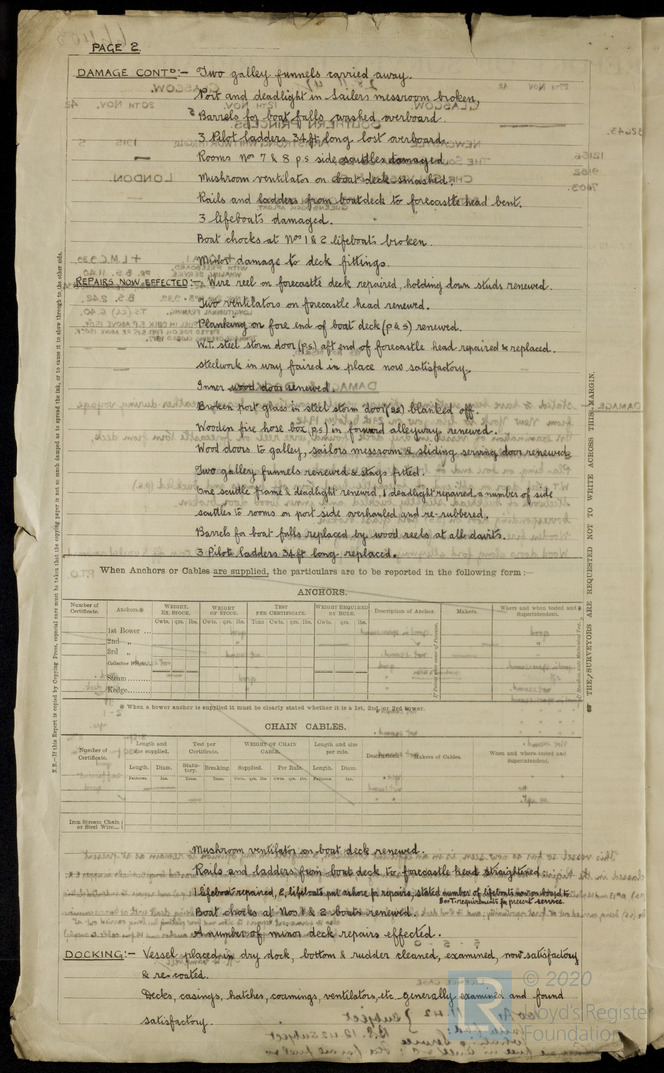 PAGE 2.
DAMAGE CONTD:- Two galley funnels carried away.
Port and deadlight in Sailers messroom broken.
3 Barrels for boat falls washed overboard.
3 Pilot ladders 34ft long lost overboard.
Rooms Nos 7 & 8 p.s side scuttles damaged.
Mushroom ventilator on boat deck smashed.
Rails and ladders from boat deck to forecastle head bent.
3 lifeboats damaged.
Boat chocks at Nos 1 & 2 lifeboats broken.
Minor damage to deck fittings.
REPAIRS NOW EFFECTED:- Wire reel on forecastle deck repaired, holding down studs renewed.
Two ventilators on forecastle head renewed.
Planking on fore end of boat deck (p & s) renewed.
W.T. steel storm door (ps) aft end of forecastle head repaired & replaced.
steelwork in way faired in place now satisfactory.
Inner wood door renewed.
Broken port glass in steel storm door (ss) blanked off.
Wooden fire hose box (ps) in forward alleyway renewed.
Wood doors to galley, sailors messroom & sliding serving door renewed.
Two galley funnels renewed & stays fitted.
One scuttle frame & deadlight renewed, 1 deadlight repaired, a number of side
scuttles to rooms on port side overhauled and re-rubbered.
Barrels for boat falls replaced by wood reels at all davits.
3 Pilot ladders 34ft long replaced.
When Anchors or Cables are supplied, the particulars are to be reported in the following form:—
ANCHORS.
Number of Certificate. Anchors.* WEIGHT, EX. STOCK. WEIGHT OF STOCK. TEST PER CERTIFICATE. WEIGHT REQUIRED BY RULE. Description of Anchor. Makers. Where and when tested and Superintendent.
Cwts. qrs. lbs. Cwts. qrs. lbs. Tons Cwts. qrs. lbs. Cwts. qrs. lbs.
1st Bower ...
2nd „
3rd „
Collective Weight
Stream ...
Kedge...
* When a bower anchor is supplied it must be clearly stated whether it is a 1st, 2nd, or 3rd bower.
CHAIN CABLES.
Number of Certificate. Length and size supplied. Test per Certificate. WEIGHT OF CHAIN CABLE. Length and size per rule. Description. Makers of Cables. Where and when tested and Superintendent.
Length. Diam. Statutory. Breaking. Supplied. Per Rule. Length. Diam.
Fathoms. Ins. Tons. Tons. Cwts. qrs. lbs. Cwts. qrs. lbs. Fathoms. Ins.
Iron Stream Chain or Steel Wire...
Mushroom ventilator on boat deck renewed.
Rails and ladders from boat deck to forecastle head straightened.
1 lifeboat repaired, 2 lifeboats put ashore for repairs, stated number of lifeboats now on board to
B.O.T. requirements for present service.
Boat chocks at Nos 1 & 2 boats renewed.
A number of minor deck repairs effected.
DOCKING:- Vessel placed in dry dock, bottom & rudder cleaned, examined, now satisfactory
& re-coated.
Decks, casings, hatches, coamings, ventilators, etc generally examined and found
satisfactory.
THE SURVEYORS ARE REQUESTED NOT TO WRITE ACROSS THIS MARGIN.
© 2020
Lloyd's Register
Foundation